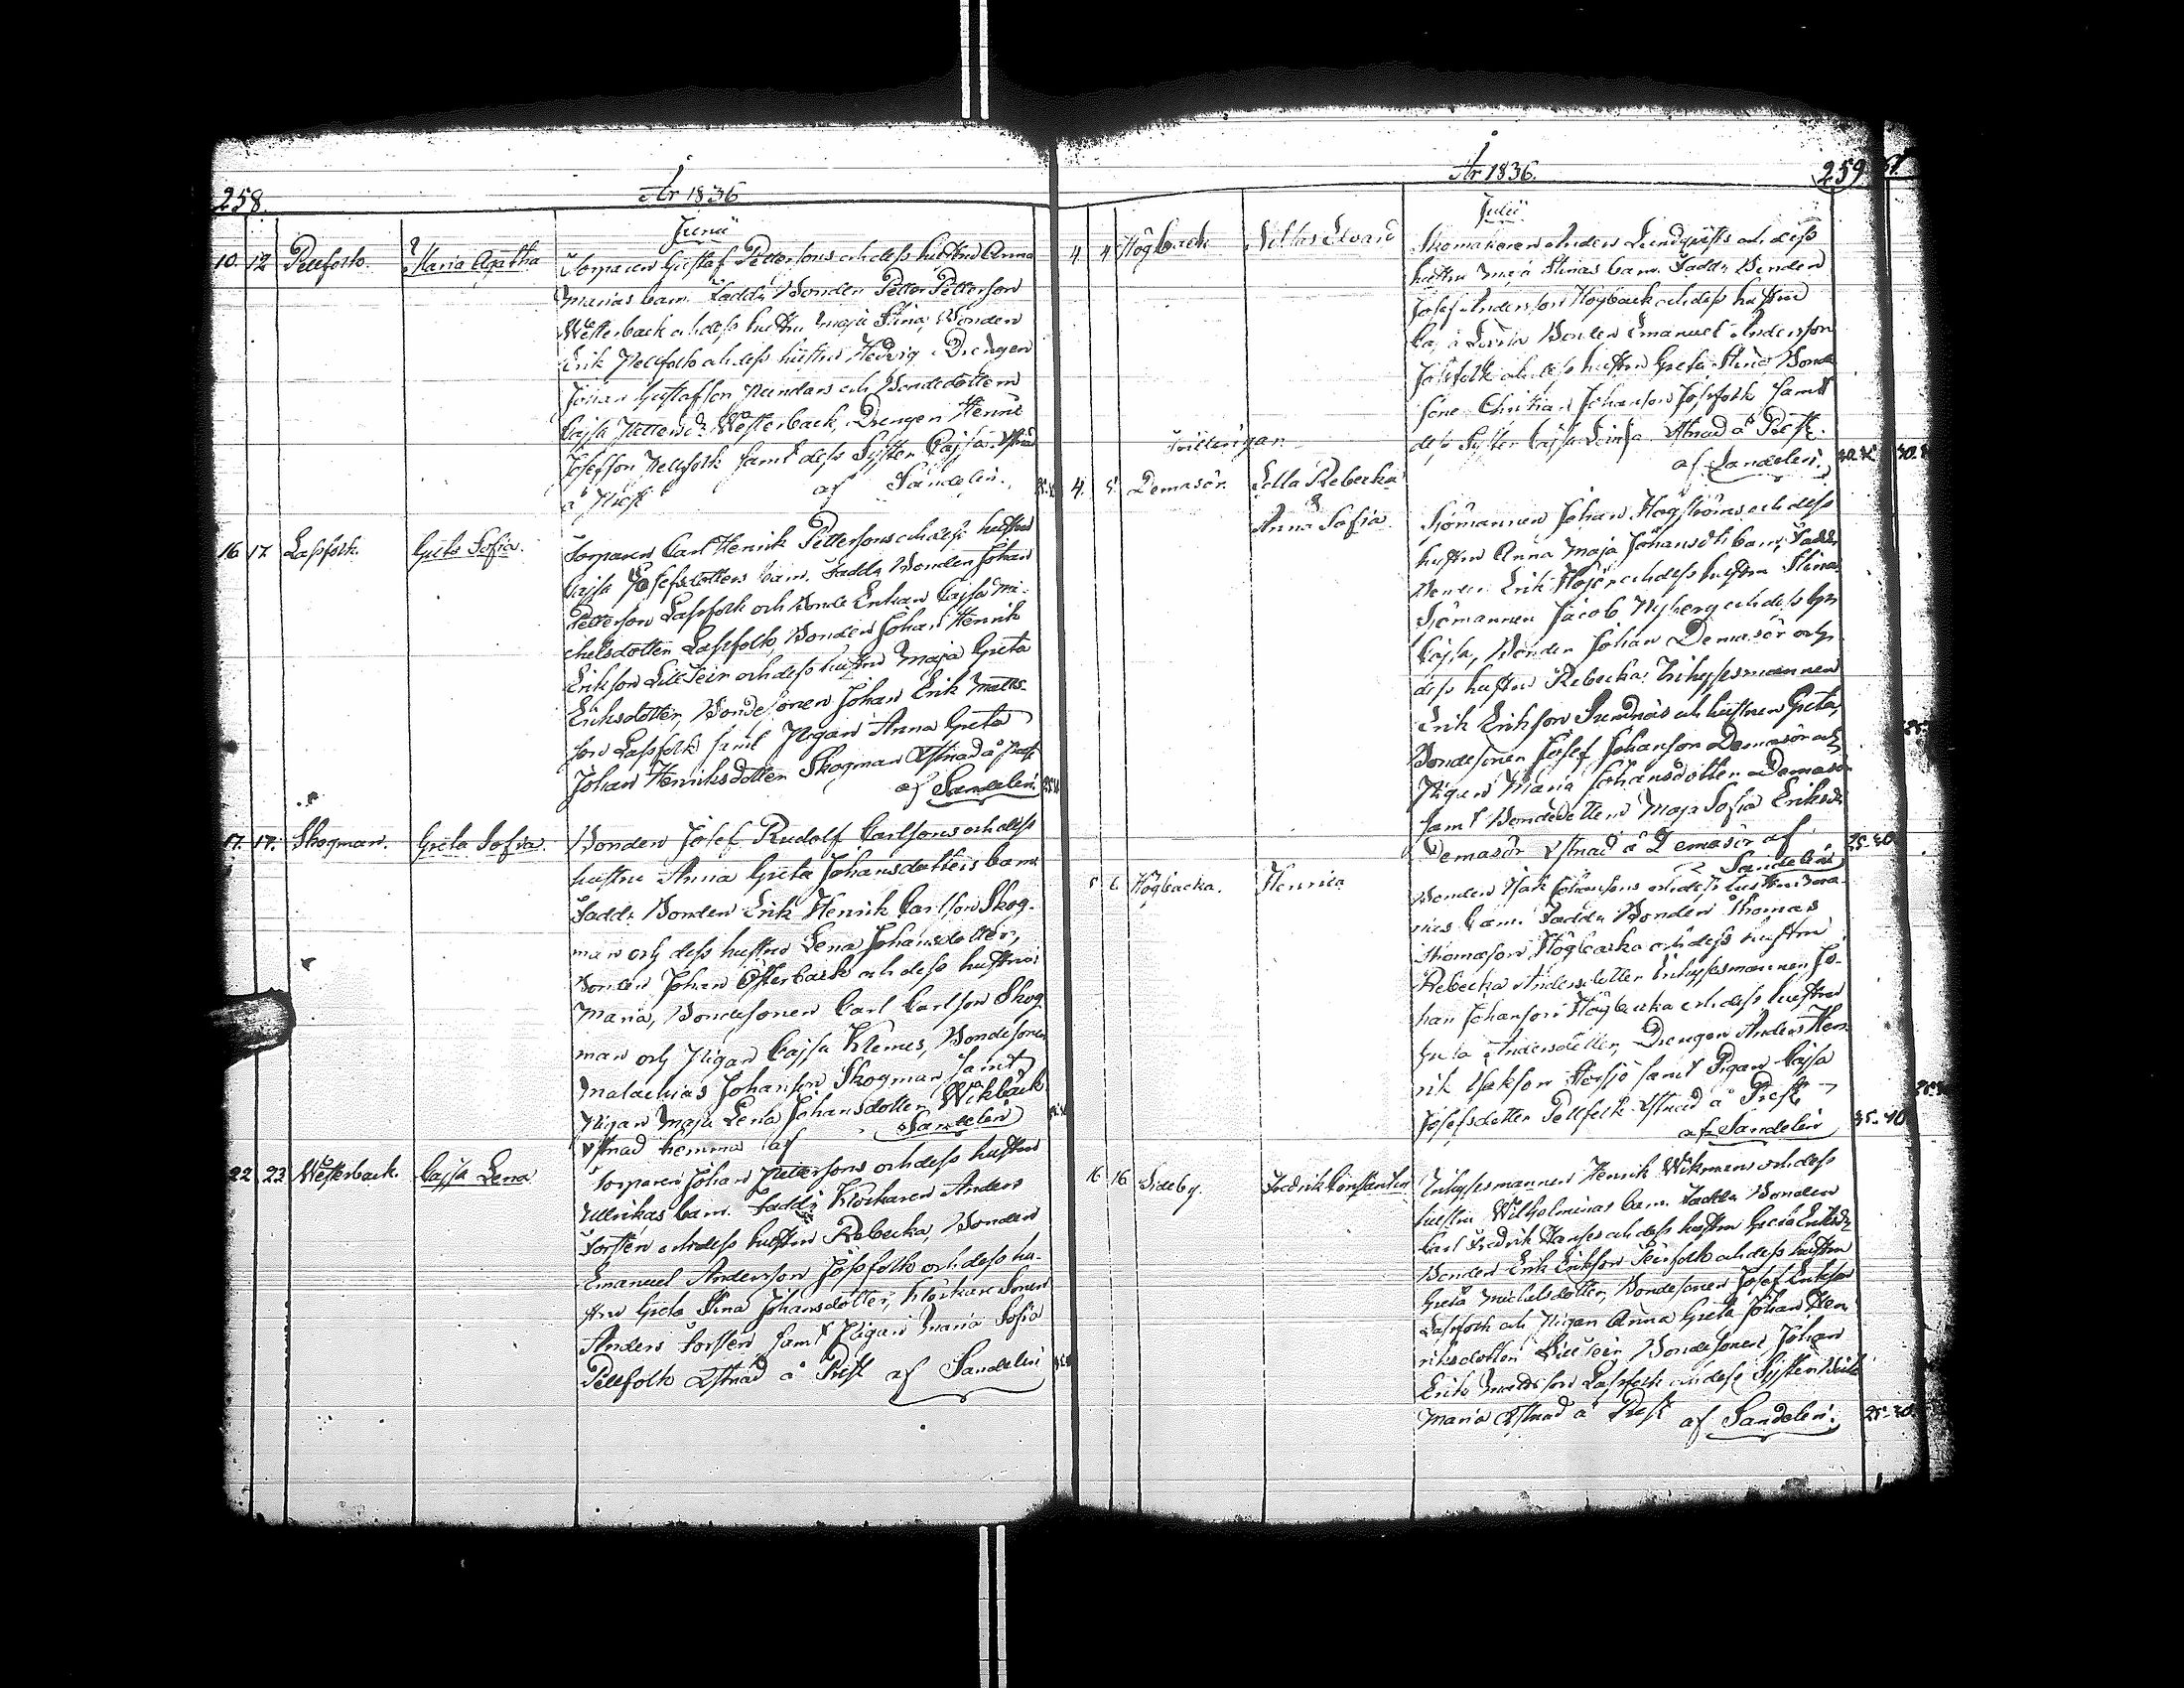 258.
År 1836
Junii
10. 12 Pellfolk. Maria Agatha Torparen Gustaf Pettersons och dess hustru Anna
Marias barn. Faddr Bonden Petter Petterson
Westerback och dess hustru Maja Stina, Bonden
Erik Pellfolk och dess hustru Hedvig, Drengen
Johan Gustafson och Bondedottern
Cajsa Westerback, Drengen Henric
Josefson Pellfolk samt dess Syster Cajsa.
å Prest af Sandelin.
16 17 Lassfolk. Greta Sofia. Torparen Carl Henrik Pettersons och dess hustru
Cajsa Josefsdotters barn. Faddr Bonden Johan
Petterson Lassfolk och Bonde Enkan Cajsa Mi-
chelsdotter Lassfolk, Bonden Johan Henrik
Erikson Lillteir och dess hustru Maja Greta
Eriksdotter, Bondesonen Johan Erik Matts-
son Lassfolk samt Pigan Anna Greta
Johan Henriksdotter Skogman Ystnad å Prest
af Sandelin.
17. 17. Skogman. Greta Sofia. Bonden Josef Rudolf Carlsons och dess
hustru Anna Greta Johansdotters barn
Faddr Bonden Erik Henrik Carlson Skog-
man och dess hustru Lena Johansdotter,
Bonden Johan Österback och dess hustru
Maria, Bondesonen Carl Carlson Skog
man och Pigan Cajsa Klemes, Bondesonen
Malachias Johanson Skogman samt
Pigan Maja Lena Johansdotter Wikback
Ystnad hemma af Sandelin
22 23 Westerback. Cajsa Lena Torparen Johan Pettersons och dess hustru
Ullrikas barn. Faddr Klockaren Anders
Torsten och dess hustru Rebecka, Bonden
Emanuel Anderson Jossfolk och dess hu-
stru Greta Stina Johansdotter, Klockare Sonen
Anders Torsten samt Pigan Maria Sofia
Pellfolk Ystnad å Prest af Sandelin
År 1836.
259
Julii
4 4 Högback Edvard Skomakaren Anders Lundqvists och dess
hustru Maja Stinas barn. Faddr Bonden
Josef Anderson Högback och dess hustru
Cajsa Bonden Emanuel Anderson
Jossfolk och dess hustru Greta Stina Bonde
sone Christian Johanson Jossfolk samt
dess Syster Cajsa Ystnad å Prest.
af Sandelin.
Tvillingar
4. 5. Demasör. Rebecka
& Anna Sofia. Sjömannen Johan Högströms och dess
hustru Anna Maja Johansdotters barn, Faddr
Erik och dess hustru Stina
Sjömannen Jacob Nyberg och dess
Cajsa, Bonden Johan Demasör och
dess hustru Rebecka, Inhysesmannen
Erik Erikson och hustrun Greta,
Bondesonen Josef Johanson Demasör och
Pigan Maria Johansdotter Demasör
samt Bondedottern Maja Sofia Eriksdr
Demasör Ystnad å Demasör af 25.40
Sandelin
5 6 Högbacka. Henrica Bonden Isak Johansons och dess hustru
barn. Faddr Bonden Thomas
Thomason Högbacka och dess hustru
Rebecka Andersdotter Inhysesmannen Jo-
han Johanson Högbacka och dess hustru
Greta Andersdotter, Drengen Anders Hen-
rik Isakson samt Pigan Cajsa
Josefsdotter Pellfolk Ystnad å Prest
af Sandelin 25.40
16 16 Sideby. Fredrik Constantin Inhysesmannen Henrik Wikmans och dess
hustru Wilhelminas barn. Faddr Bonden
Carl Fredrik och dess hustru Greta Eriksdr
Bonden Erik Erikson Teirfolk och dess hustru
Greta Michelsdotter, Bondesonen Josef Erikson
Lassfolk och Pigan Anna Greta Johan Hen-
riksdotter Lillteir Bondesonen Johan
Erik Mattsson Lassfolk och dess Syster
Maria Ystnad å Prest af Sandelin. 25.40